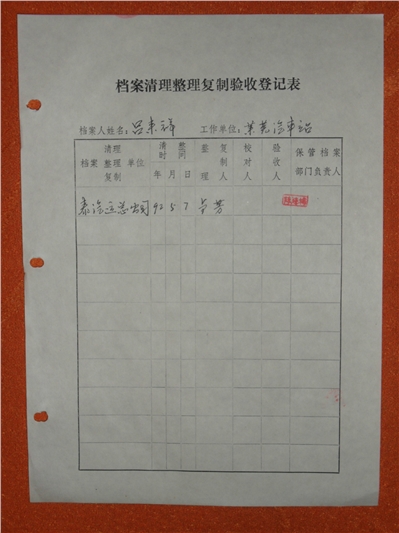 档案清理整理复制验收登记表
档案人姓名：吕来祥 工作单位：莱芜汽车站
清理 清 整 整 复 校 验 保管档案
档案 整理 单位 时 间 制 对 收
复制 年 月 日 理 人 人 人 部门负责人
泰汽运总公司 92 5 7 芳